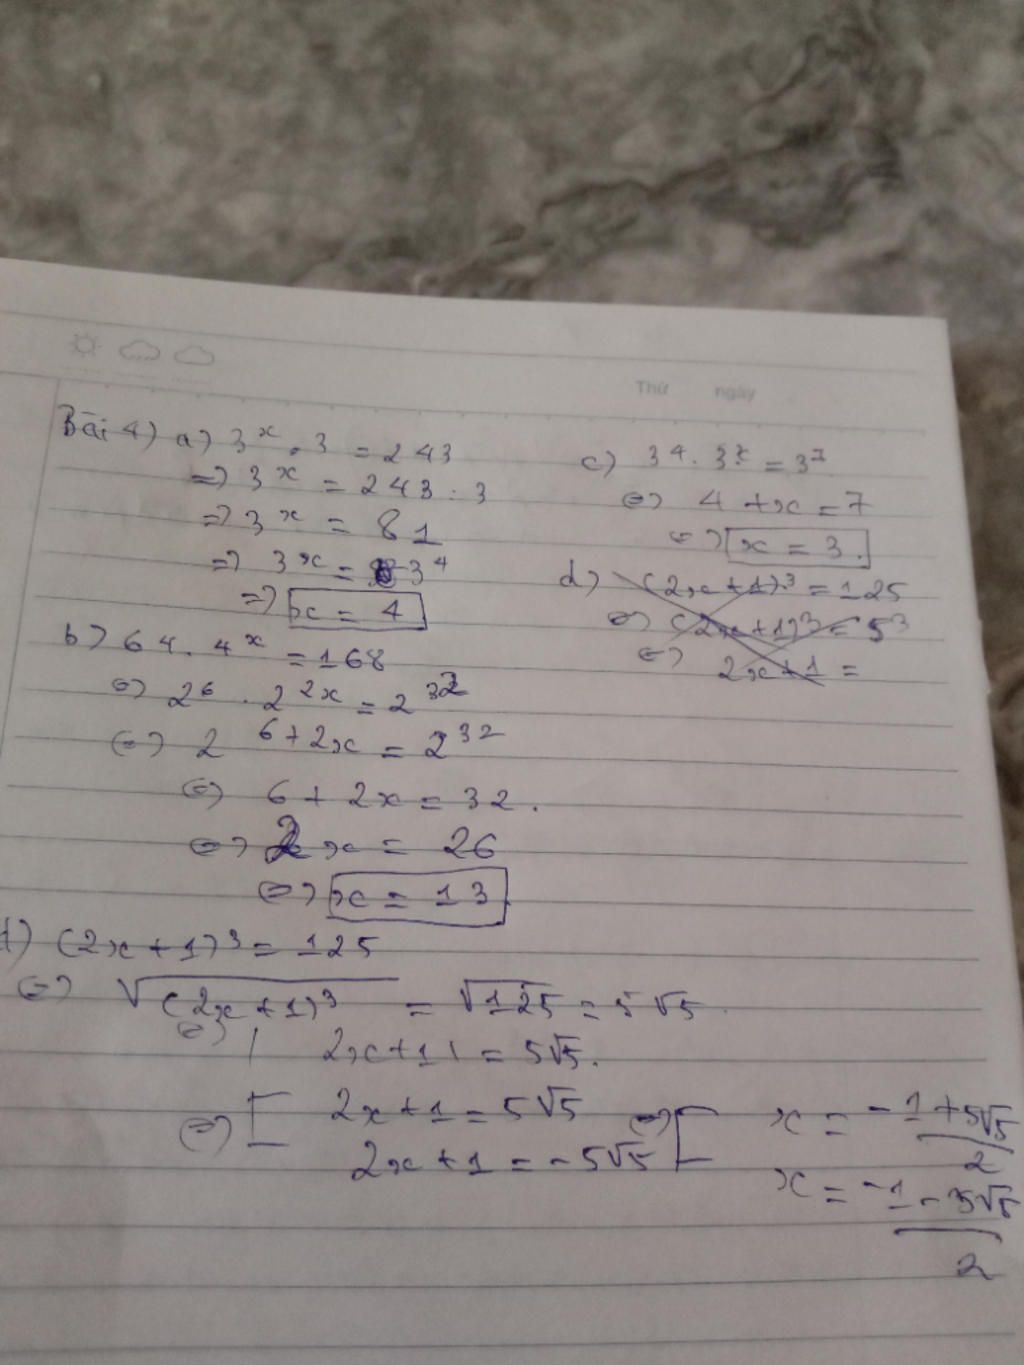 Thứ ngày
Bài 4) a) 3^x . 3 = 243
=> 3^x = 243 : 3
=> 3^x = 81
=> 3^x = 3^4
=> x = 4
b) 64 . 4^x = 168
<=> 2^6 . 2^2x = 2^32
<=> 2^6+2x = 2^32
<=> 6 + 2x = 32.
<=> 2x = 26
<=> x = 13
c) 3^4 . 3^x = 3^7
<=> 4 + x = 7
<=> x = 3.
d) (2x+1)^3 = 125
<=> (2x+1)^3 = 5^3
<=> 2x+1 =
d) (2x+1)^3 = 125
<=> √(2x+1)^3 = √125 = 5√5
<=> |2x+1| = 5√5.
<=> [ 2x+1 = 5√5 <=> [ x = -1+5√5 / 2
2x+1 = -5√5 x = -1-5√5 / 2